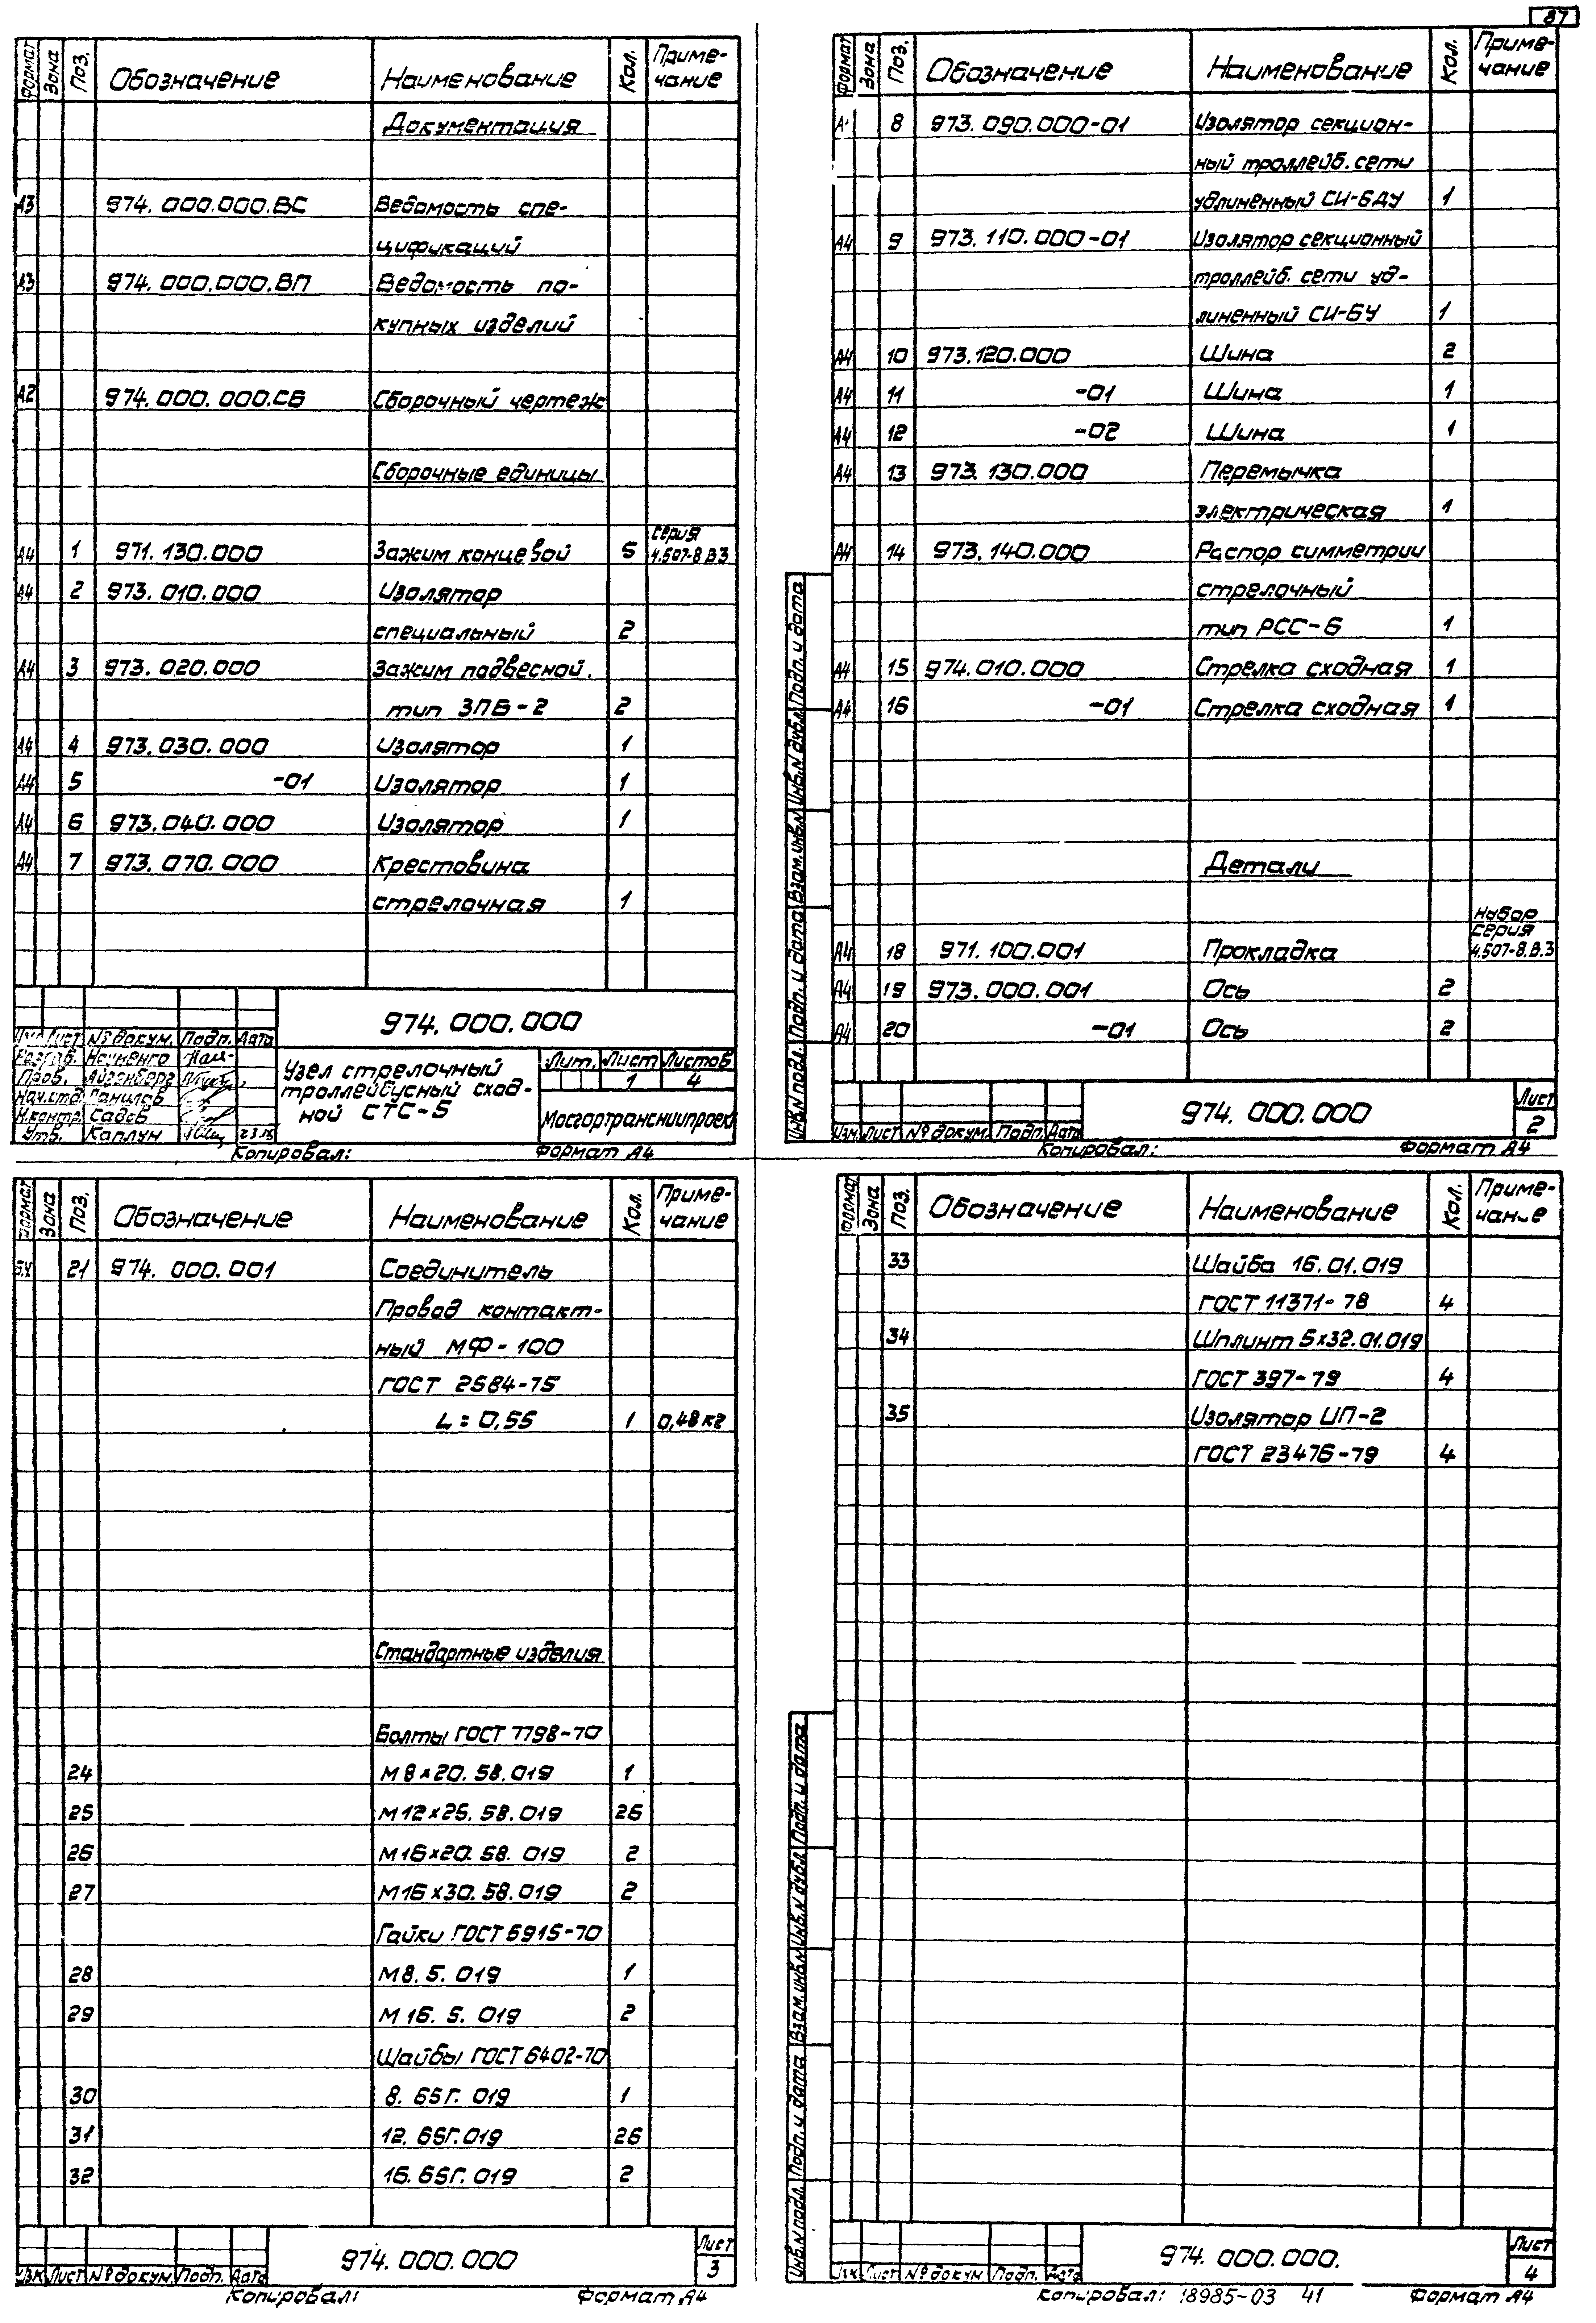 87
Формат Зона Поз. Обозначение Наименование Кол. Приме-
чание
Документация
А3 974.000.000.ВС Ведомость спе-
цификаций
А3 974.000.000.ВП Ведомость по-
купных изделий
А2 974.000.000.СБ Сборочный чертеж
Сборочные единицы
серия
А4 1 971.130.000 Зажим концевой 5 4.507-8 В3
А4 2 973.010.000 Изолятор
специальный 2
А4 3 973.020.000 Зажим подвесной.
тип ЗПБ-2 2
А4 4 973.030.000 Изолятор 1
А4 5 -01 Изолятор 1
А4 6 973.040.000 Изолятор 1
А4 7 973.070.000 Крестовина
стрелочная 1
974.000.000
Изм Лист № докум. Подп. Дата
Разраб. Науменко
Пров. Айзенберг
Нач.отд. Данилов
Н.контр. Садов
Утв. Каплун
Узел стрелочный
троллейбусный сход-
ной СТС-5
Лит. Лист Листов
1 4
Мосгортрансниипроект
Копировал: Формат А4
Формат Зона Поз. Обозначение Наименование Кол. Приме-
чание
8 973.090.000-01 Изолятор секцион-
ный троллейб. сети
удлиненный СИ-6ДУ 1
А4 9 973.110.000-01 Изолятор секционный
троллейб. сети уд-
линенный СИ-6У 1
А4 10 973.120.000 Шина 2
А4 11 -01 Шина 1
А4 12 -02 Шина 1
А4 13 973.130.000 Перемычка
электрическая 1
А4 14 973.140.000 Распор симметрич
стрелочный
тип РСС-6 1
А4 15 974.010.000 Стрелка сходная 1
А4 16 -01 Стрелка сходная 1
Детали
Набор
серия
А4 18 971.100.001 Прокладка 4.507-8.В.3
А4 19 973.000.001 Ось 2
А4 20 -01 Ось 2
Инв.N подл. Подп. и дата Взам.инв.N Инв.N дубл. Подп. и дата
Изм. Лист № докум. Подп. Дата
974.000.000
Лист
2
Копировал: Формат А4
Формат Зона Поз. Обозначение Наименование Кол. Приме-
чание
Б.Ч 21 974.000.001 Соединитель
Провод контакт-
ный МФ-100
ГОСТ 2584-75
L=0,55 1 0,48 кг
Стандартные изделия
Болты ГОСТ 7798-70
24 М8×20.58.019 1
25 М12×25.58.019 26
26 М16×20.58.019 2
27 М16×30.58.019 2
Гайки ГОСТ 5915-70
28 М8.5.019 1
29 М16.5.019 2
Шайбы ГОСТ 6402-70
30 8.65Г.019 1
31 12.65Г.019 26
32 16.65Г.019 2
Изм Лист № докум. Подп. Дата
974.000.000
Лист
3
Копировал: Формат А4
Формат Зона Поз. Обозначение Наименование Кол. Приме-
чание
33 Шайба 16.01.019
ГОСТ 11371-78 4
34 Шплинт 5×32.01.019
ГОСТ 397-79 4
35 Изолятор ИП-2
ГОСТ 23476-79 4
Инв.N подл. Подп. и дата Взам.инв.N Инв.N дубл. Подп. и дата
Изм Лист № докум Подп. Дата
974.000.000.
Лист
4
Копировал: 18985-03 41 Формат А4